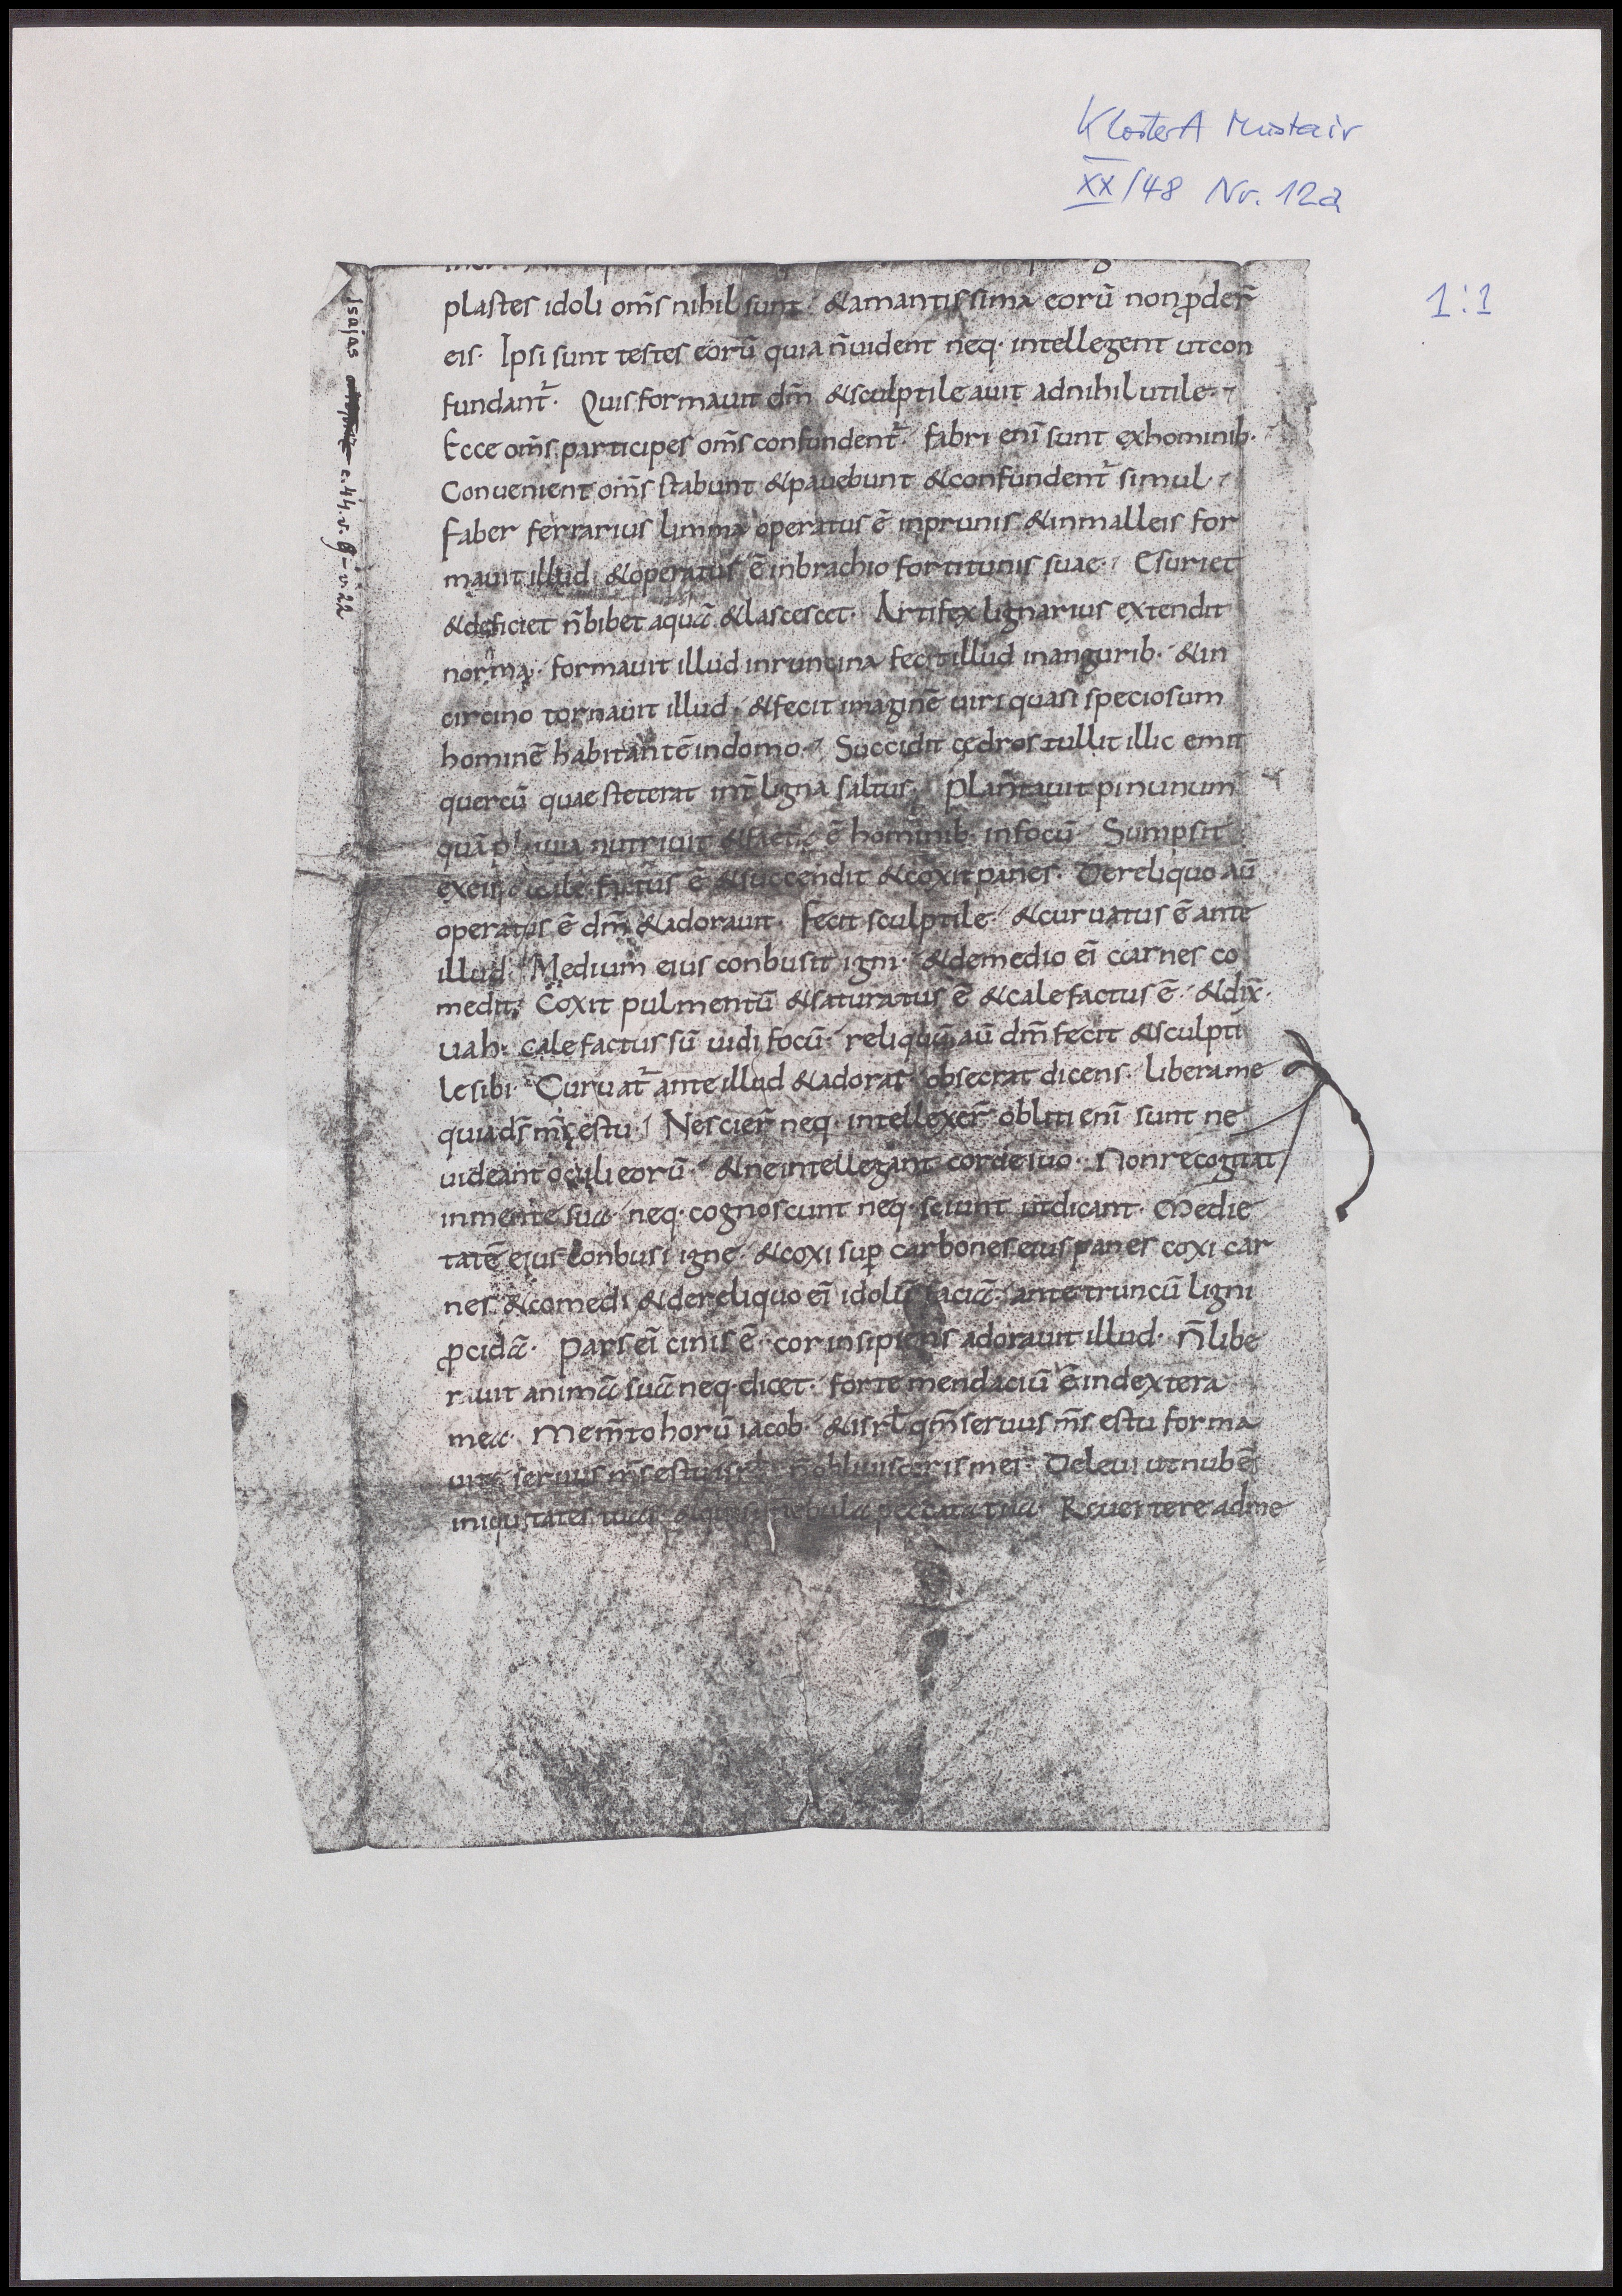 KlosterA Müstair
XX/48 Nr. 12a
1:1
Isaias c. 44. v. 9 - v. 22
plastes idoli om̄s nihil sunt · & amantissima eorū non ꝓder̄
eis · Ipsi sunt testes eorū quia n̄ uident neq · intellegent ut con
fundant̄ · Quis formauit dm̄ & sculptile auit ad nihil utile ·
Ecce om̄s participes om̄s confundent̄ · fabri eni sunt ex hominib ·
Conuenient om̄s stabunt & pauebunt & confundent̄ simul ·
faber ferrarius limma operatus ē in prunis & in malleis for
mauit illud · & operatus ē in brachio fortitunis suae · Esuriet
& deficiet n̄ bibet aquā & lascescet · Artifex lignarius extendit
norma · formauit illud in runcina fecit illud in angurib · & in
circino tornauit illud · & fecit imaginē uiri quasi speciosum
hominē habitantē in domo · Succidit cędros tullit illic emit
quercū quae steterat int̄ ligna saltus · Plantauit pinunum
quā pluuia nutriuit & facta ē hominib · in focū Sumpsit
ex eis & cale factus ē & succendit & coxit panes · De reliquo aū
operatus ē dm̄ & adorauit · fecit sculptile · & curuatus ē ante
illud · Medium eius conbusit igni · & de medio ei carnes co
medit · Coxit pulmentū & saturatus ē & cale factus ē · & dix̄ ·
uah · cale factus sū uidi focū · reliquū aū dm̄ fecit & sculpti
le sibi · Curuat̄ ante illud & adorat · obsecrat dicens · libera me
quia ds̄ ms̄ es tu · Nescier̄ neq · intellexer̄ obliti eni sunt ne
uideant oculi eorū · & ne intellegant corde suo · Non recogitat
in mente sua neq · cognoscunt neq · sciunt ut dicant · Medie
tatē eius conbusi igne · & coxi suꝑ carbones eius panes coxi car
nes & comedi & de reliquo ei idolū faciā · ante truncū ligni
ꝓcidā · Pars ei cinis ē · cor insipiens adorauit illud · n̄ libe
rauit animā suā neq · dicet · forte mendaciū ē in dextera
mea · Mem̄to horū iacob · & isrl̄ qm̄ seruus ms̄ es tu forma
ui te seruus ms̄ es tu isrl̄ n̄ obliuisceris mei · Deleui ut nubē
iniquitates tuas · & quasi nebula peccata tua · Reuertere ad me